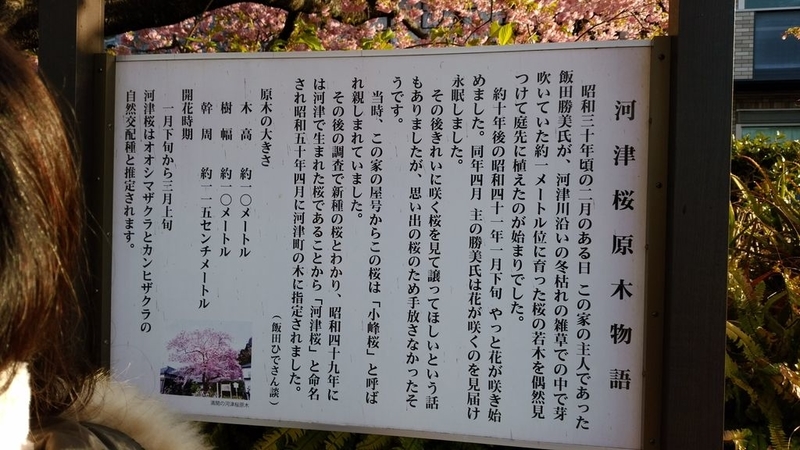 河津桜原木物語
昭和三十年頃の二月のある日 この家の主人であった
飯田勝美氏が、河津川沿いの冬枯れの雑草での中で芽
吹いていた約一メートル位に育った桜の若木を偶然見
つけて庭先に植えたのが始まりでした。
約十年後の昭和四十一年一月下旬 やっと花が咲き始
めました。同年四月 主の勝美氏は花が咲くのを見届け
永眠しました。
その後きれいに咲く桜を見て譲ってほしいという話
もありましたが、思い出の桜のため手放さなかったそ
うです。
当時、この家の屋号からこの桜は「小峰桜」と呼ば
れ親しまれていました。
その後の調査で新種の桜とわかり、昭和四十九年に
は河津で生まれた桜であることから「河津桜」と命名
され昭和五十年四月に河津町の木に指定されました。
(飯田ひでさん談)
原木の大きさ
木 高 約一〇メートル
樹 幅 約一〇メートル
幹 周 約一一五センチメートル
開花時期
一月下旬から三月上旬
河津桜はオオシマザクラとカンヒザクラの
自然交配種と推定されます。
満開の河津桜原木